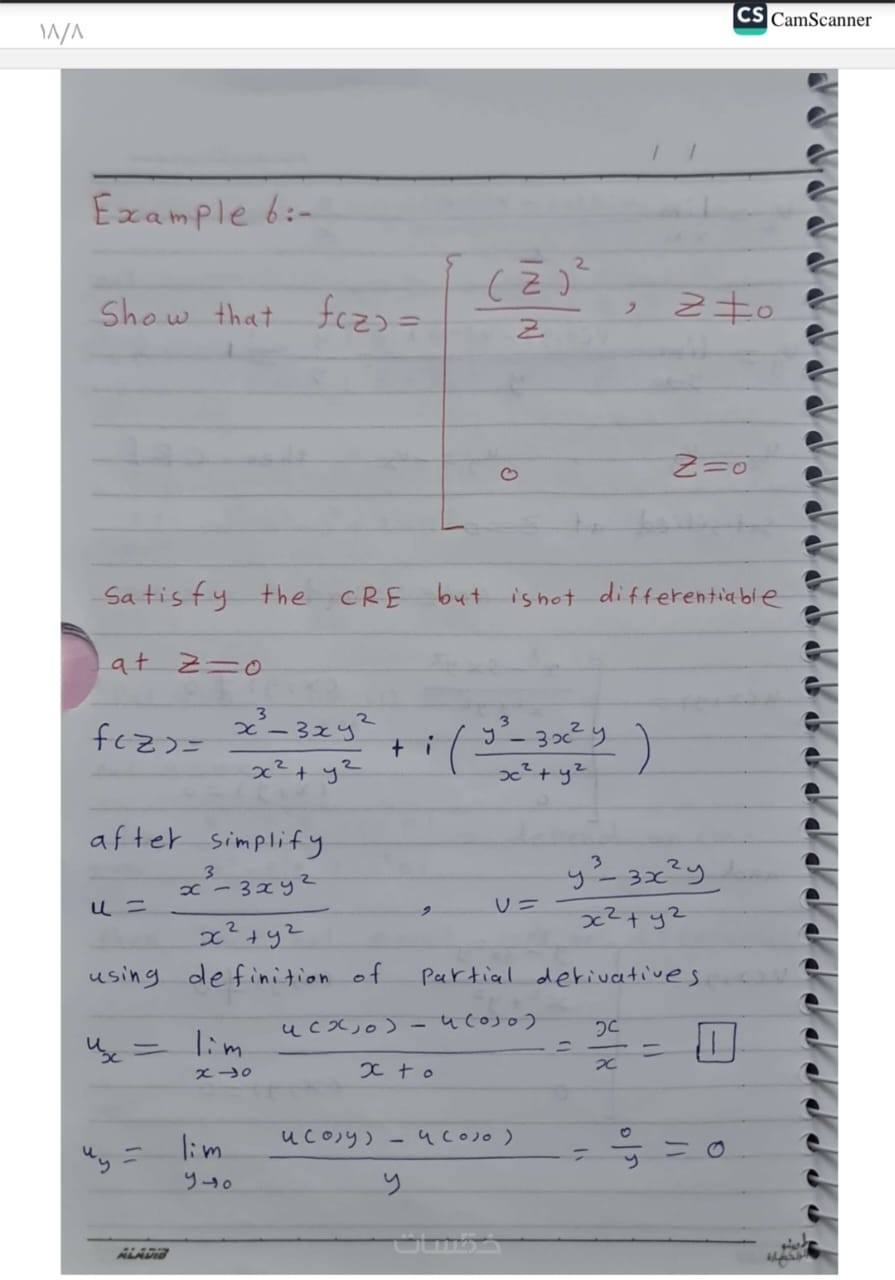 ١٨/٨
CS CamScanner
/ /
Example 6:-
Show that f(z) = [ (z̄)² / z , z ≠ 0
0 z=0
Satisfy the CRE but is not differentiable
at z=0
f(z) = (x³-3xy²)/(x²+y²) + i ( (y³-3x²y)/(x²+y²) )
after simplify
u = (x³-3xy²)/(x²+y²) , v = (y³-3x²y)/(x²+y²)
using definition of partial derivatives
u_x = lim x→0 (u(x,0) - u(0,0))/(x+0) = x/x = 1
u_y = lim y→0 (u(0,y) - u(0,0))/y = 0/y = 0
ALADIB
خمسات